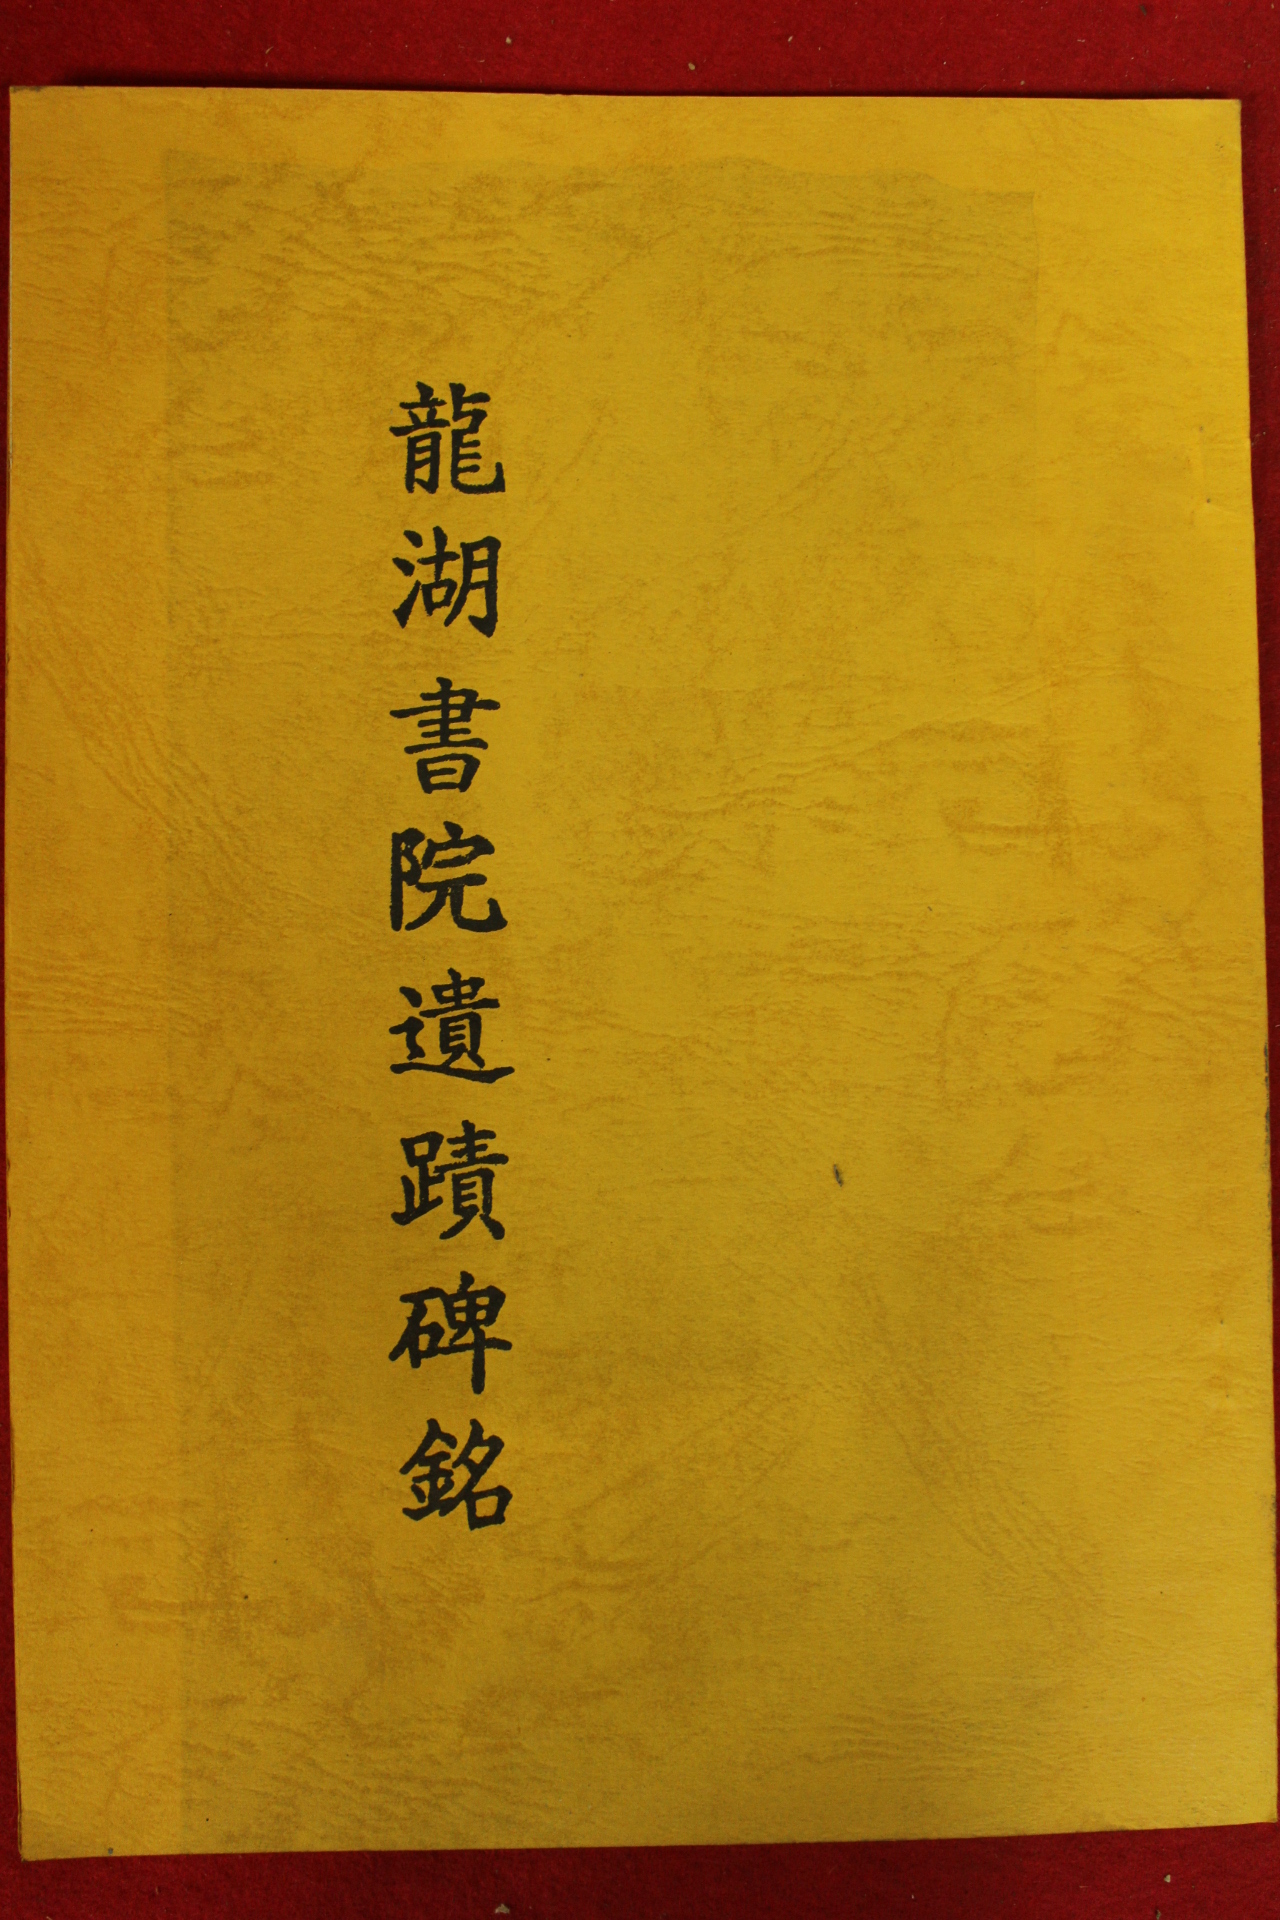 龍湖書院遺蹟碑銘